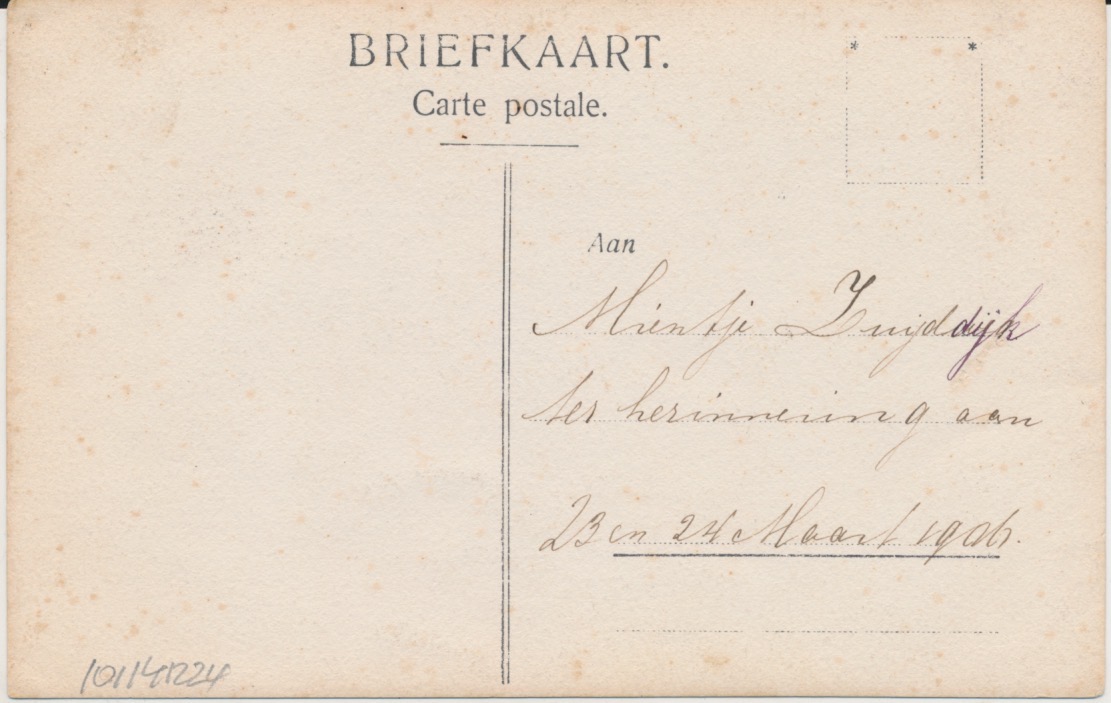 BRIEFKAART.
Carte postale.
Aan
Mientje Zuijddijk
ter herinnering aan
23 en 24 Maart 1906.
101141224